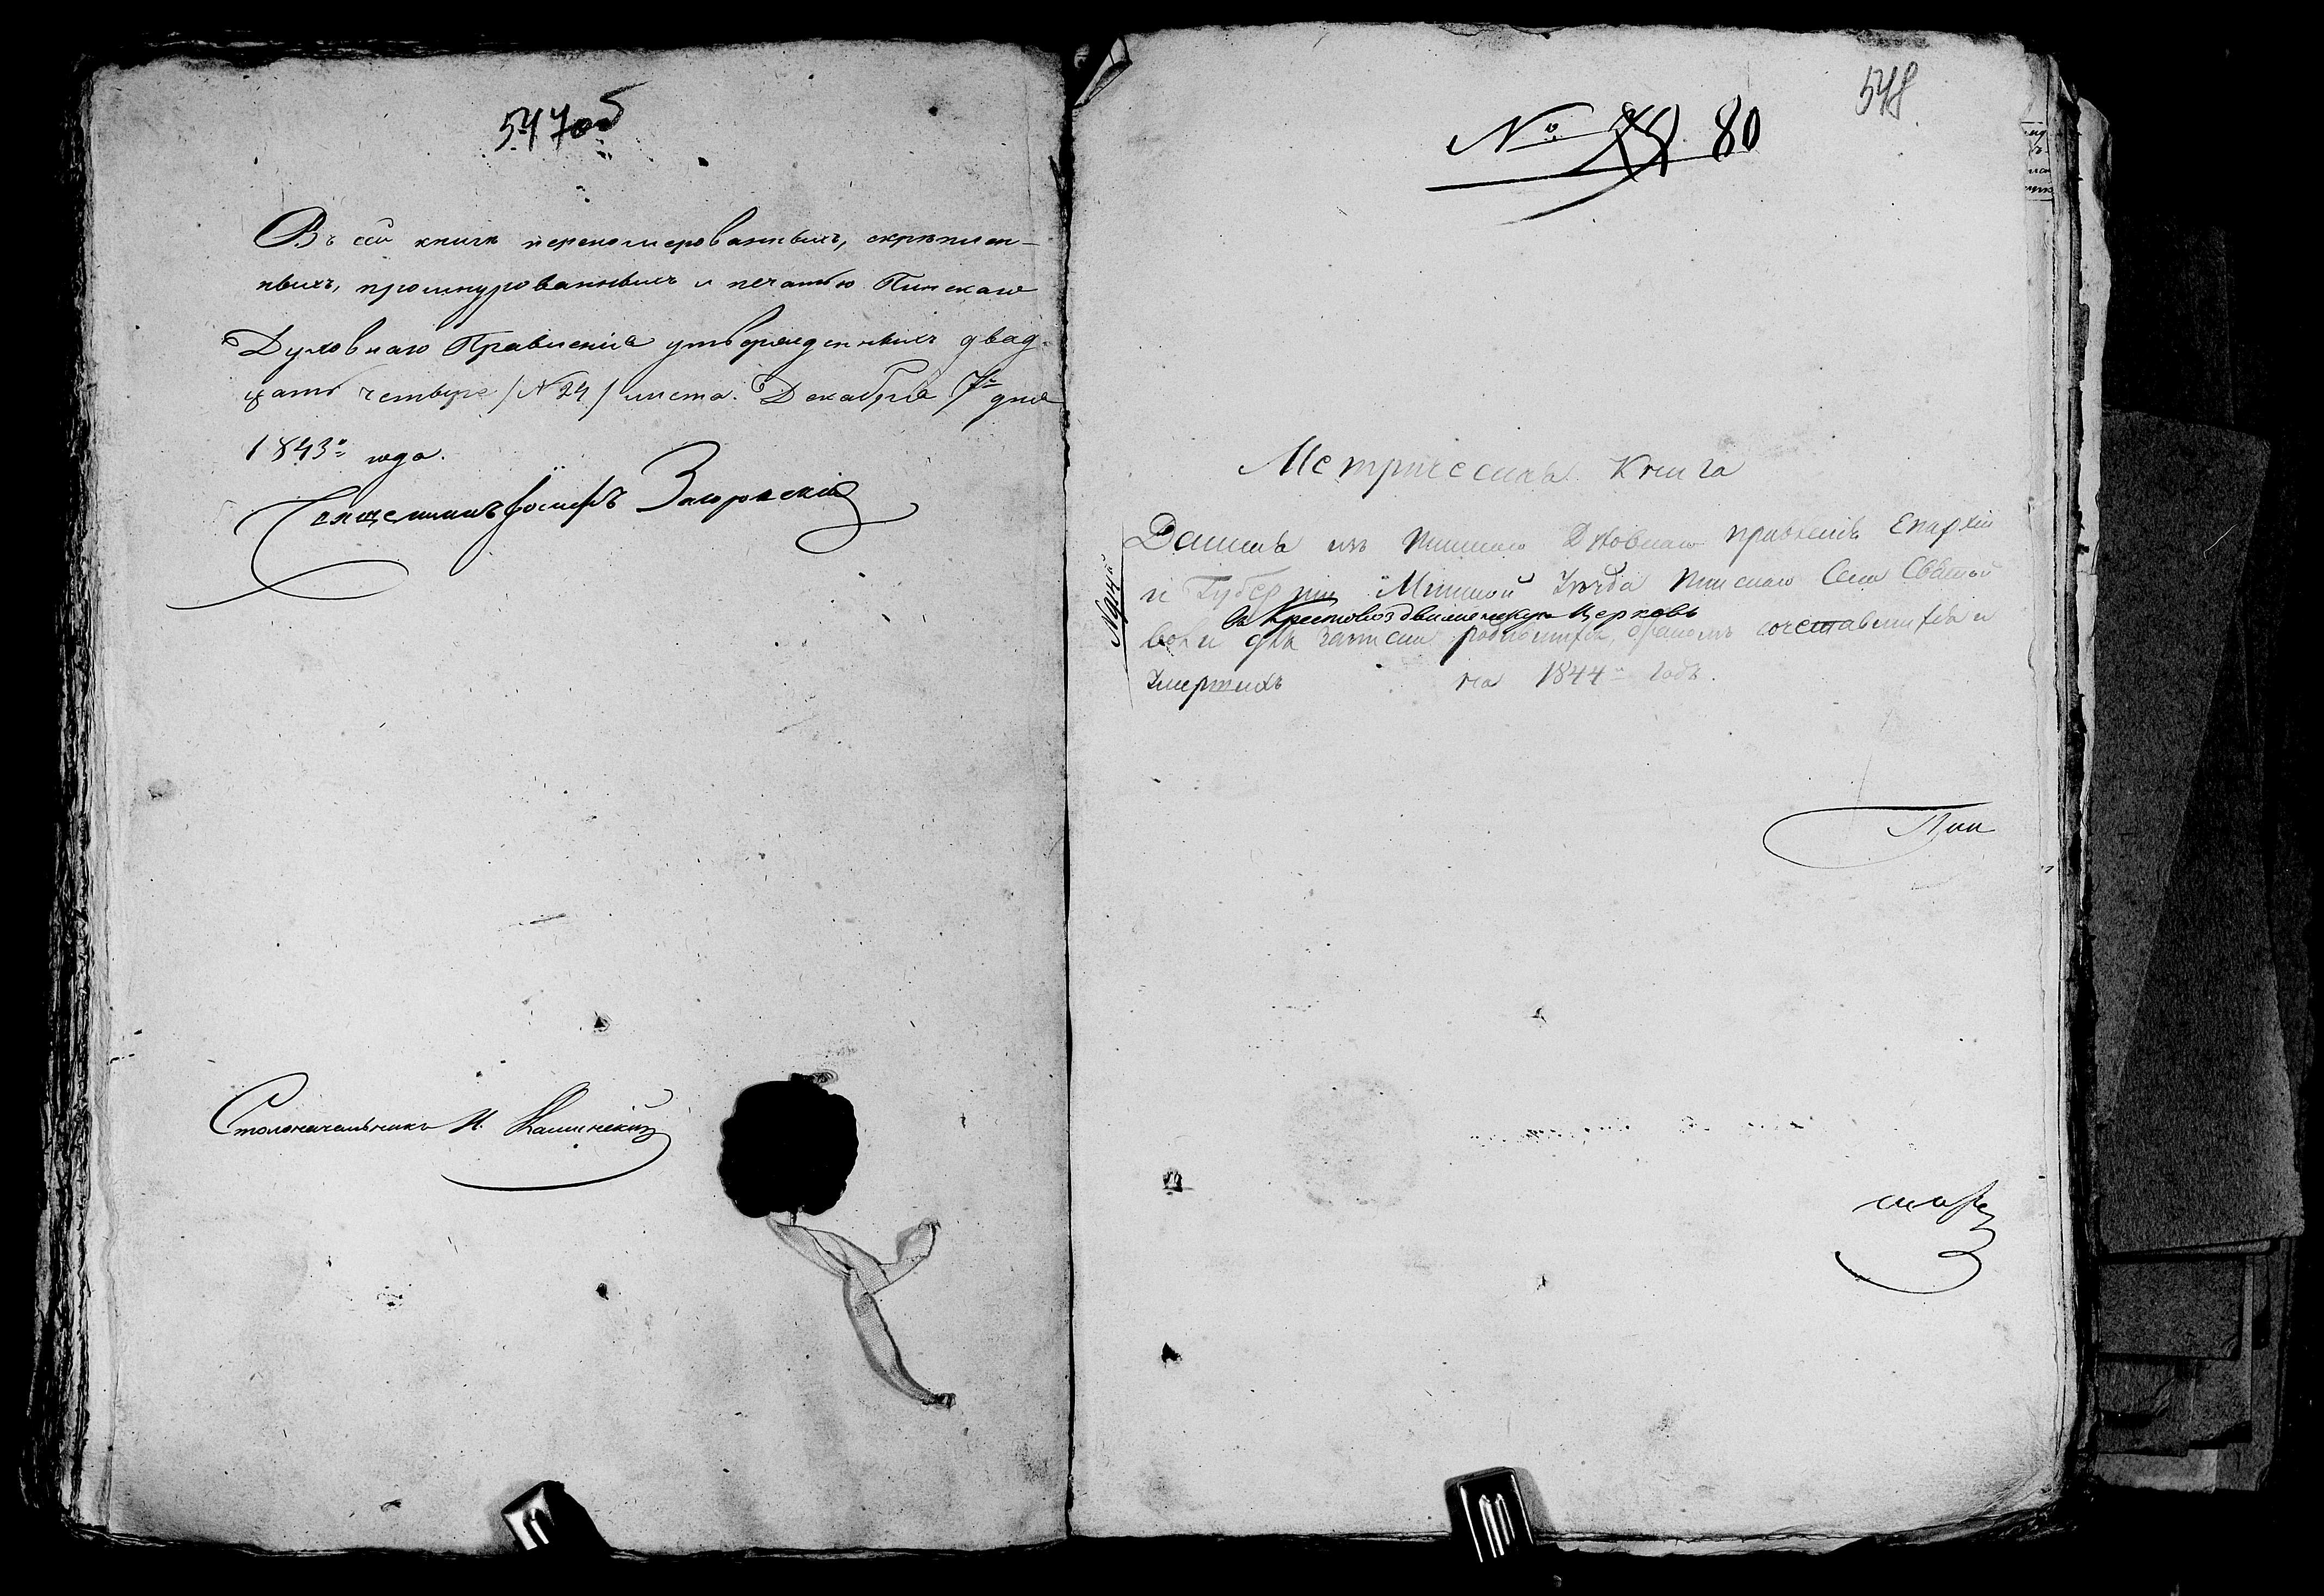 547об
Въ сей книгѣ перенумерованныхъ, скрѣплен-
ныхъ, прошнурованныхъ и печатью Пинскаго
Духовнаго Правленія утвержденныхъ двад-
цать четыре /№ 24/ листа. Декабря 7го дня
1843го года.
Священникъ Іосифъ Загорскій
Столоначальникъ И. Калинскій
548
№ 80
Метрическая Книга
Данная изъ Пинскаго Духовнаго правленія Епархіи
и Губерніи Минской Уѣзда Пинскаго Села Святой
въ Крестовоздвиженскую Церковь
Воли для записи родившихся, бракомъ сочетавшихся и
Умершихъ на 1844й годъ.
Пин